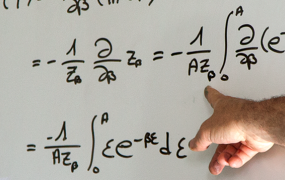 = - 1/Z_β ∂/∂β Z_β = - 1/(A Z_β) ∫_0^A ∂/∂β (e⁻
= -1/(A Z_β) ∫_0^A ε e^{-βε} dε